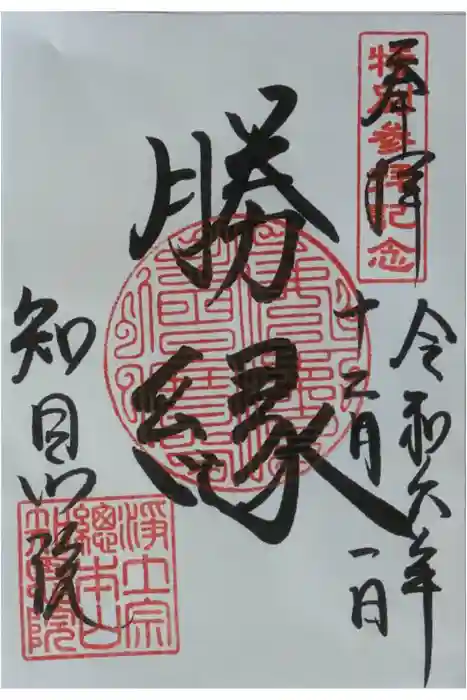 奉拝
特別参拝記念
令和六年
十二月一日
勝縁
知恩院
浄土宗
總本山
知恩院